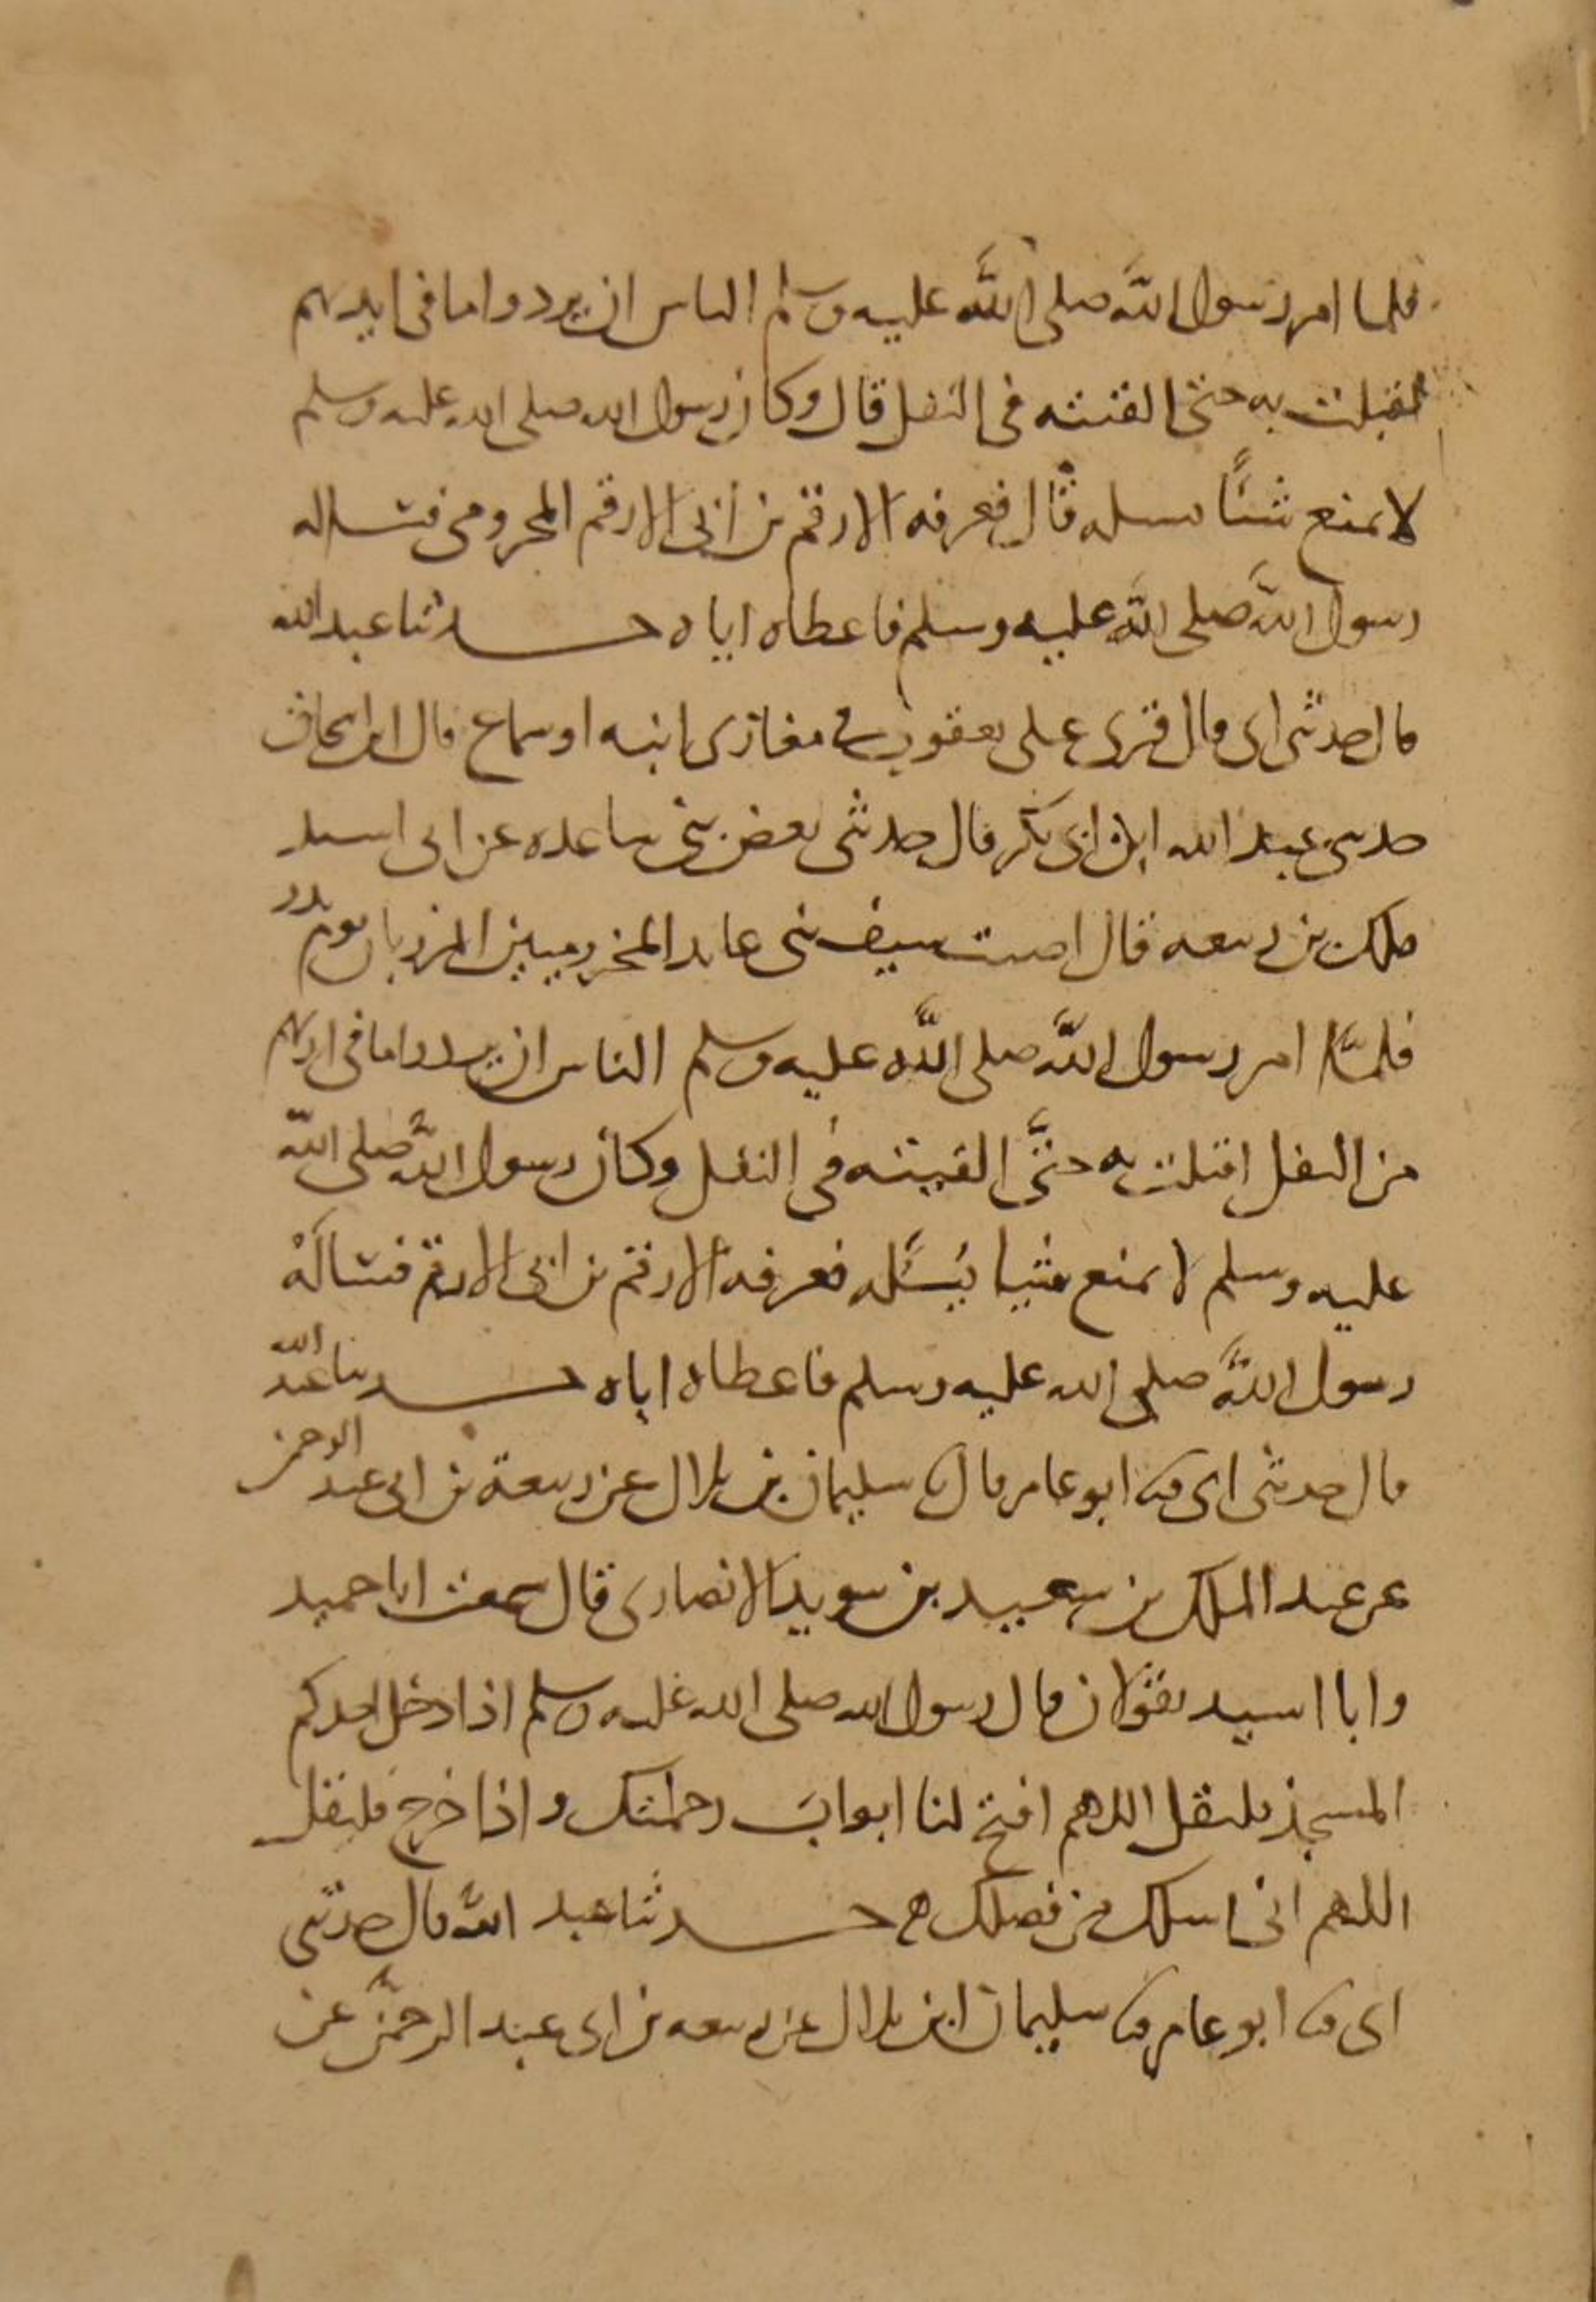 فلما امر رسول الله صلى الله عليه وسلم الناس ان يردوا ما في ايديهم
اقبلت به حتى القيته في النفل قال وكان رسول الله صلى الله عليه وسلم
لا يمنع شيئا يسله قال فعرفه الارقم بن ابي الارقم المخزومي فساله
رسول الله صلى الله عليه وسلم فاعطاه اياه حدثنا عبد الله
قال حدثني ابي قال قرئ على يعقوب في مغازي ابيه او سماع قال ابن اسحاق
حدثني عبد الله ابن ابي بكر قال حدثني بعض بني ساعده عن ابي اسيد
ملك بن ربيعه قال اصبت سيف بني عابد المخزوميين المرزبان يوم بدر
فلما امر رسول الله صلى الله عليه وسلم الناس ان يردوا ما في ايديهم
من النفل اقبلت به حتى القيته في النفل وكان رسول الله صلى الله
عليه وسلم لا يمنع شيا يسله فعرفه الارقم بن ابي الارقم فساله
رسول الله صلى الله عليه وسلم فاعطاه اياه حدثنا عبد الله
قال حدثني ابي ثنا ابو عامر قال ثنا سليمان بن بلال عن ربيعة بن ابي عبد الرحمن
عن عبد الملك بن سعيد بن سويد الانصاري قال سمعت ابا حميد
وابا اسيد يقولان قال رسول الله صلى الله عليه وسلم اذا دخل احدكم
المسجد فليقل اللهم افتح لنا ابواب رحمتك واذا خرج فليقل
اللهم اني اسلك من فضلك حدثنا عبد الله قال حدثني
ابي ثنا ابو عامر ثنا سليمان ابن بلال عن ربيعه بن ابي عبد الرحمن عن